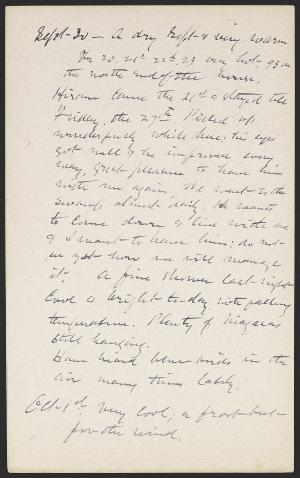 Sept-30 - A dry Sept & very warm
The 20, 21st 22d, 23 very hot, 93 on
the north end of the house.
Hiram came the 21st & stayed till
Friday, the 29th Picked up
wonderfully while here; his eyes
got well & he improved every
way, Great pleasure to have him
with me again. We went to the
swamp almost daily. He wants
to come down & live with me
& I want to have him; do not
see yet how we will manage
it. A fine shower last night
Cool & bright to-day with falling
temperature. Plenty of Niagaras
still hanging.
Have heard blue-birds in the
air many times lately.
Oct-1st. Very cool; a frost but
for the wind.